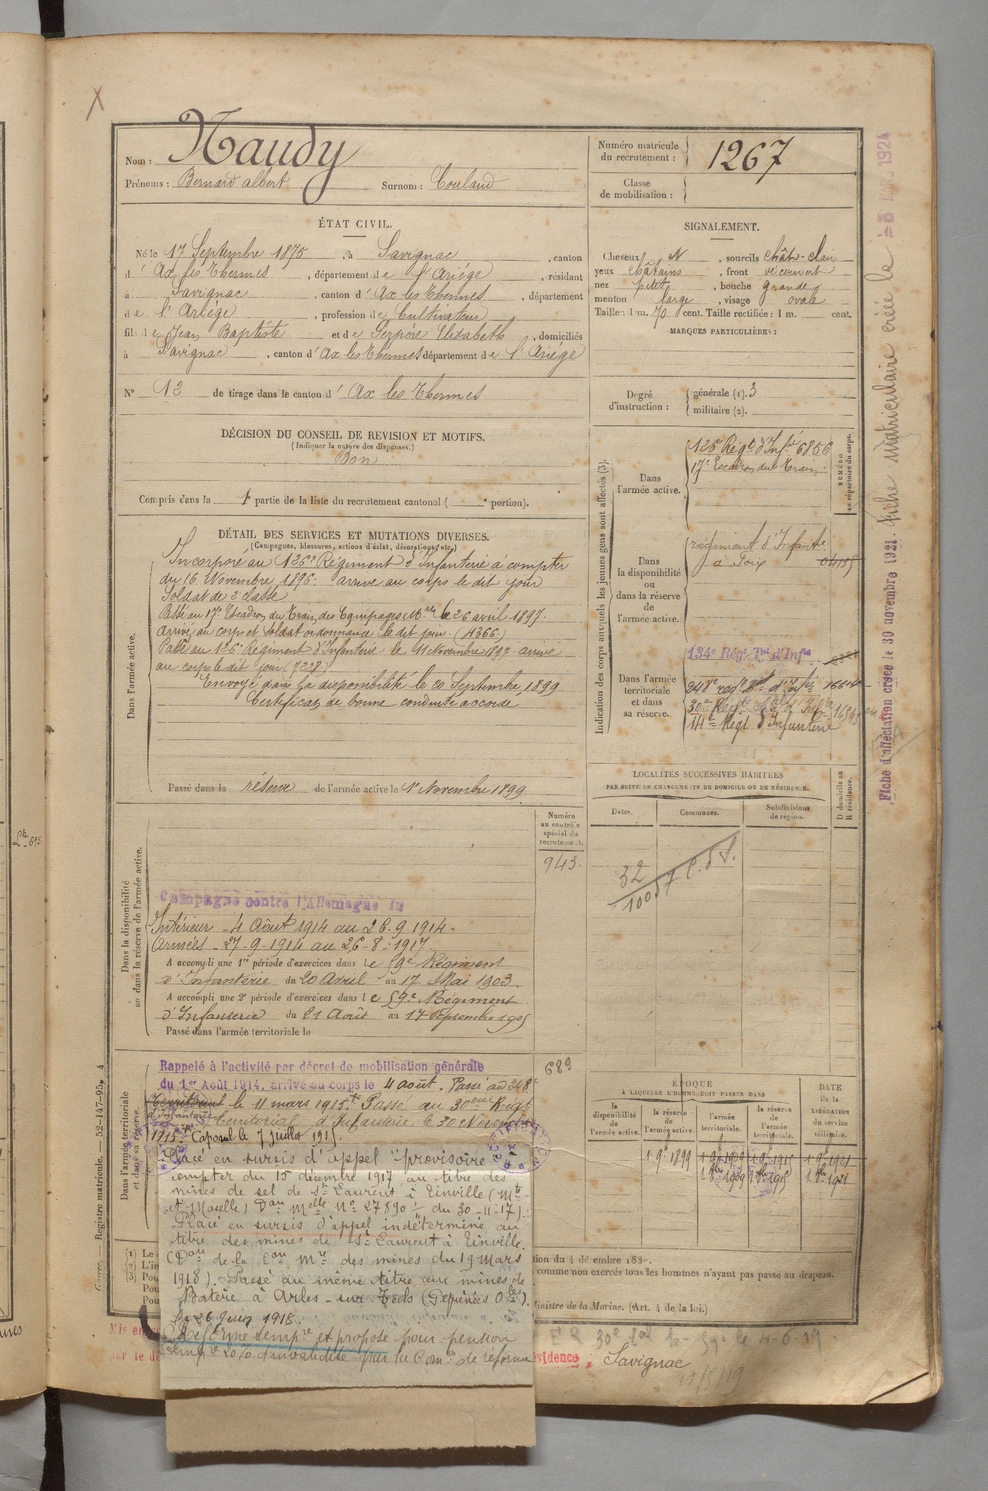 Nom : Naudy
Prénoms : Bernard albert Surnom : Couland
Numéro matricule du recrutement : 1267
Classe de mobilisation :
ÉTAT CIVIL.
Né le 17 Septembre 1875, à Savignac, canton
d' Ax les Thermes, département de l'Ariège, résidant
à Savignac, canton d' Ax les Thermes, département
de l'Ariège, profession de Cultivateur
fils de Jean Baptiste et de Serpère Elisabeth, domiciliés
à Savignac, canton d' Ax les Thermes département de l'Ariège
N° 12 de tirage dans le canton d' Ax les Thermes
SIGNALEMENT.
Cheveux N, sourcils chât-clair
yeux châtains, front découvert
nez petit, bouche grande
menton large, visage ovale
Taille : 1 m. 70 cent. Taille rectifiée : 1 m. cent.
MARQUES PARTICULIÈRES :
Degré d'instruction : générale (1). 3
militaire (2).
DÉCISION DU CONSEIL DE REVISION ET MOTIFS.
(Indiquer la nature des dispenses.)
Bon
Compris dans la 1e partie de la liste du recrutement cantonal ( e portion).
DÉTAIL DES SERVICES ET MUTATIONS DIVERSES.
(Campagnes, blessures, actions d'éclat, décorations, etc.)
Dans l'armée active.
Incorporé au 126e Régiment d'Infanterie à compter
du 16 Novembre 1896. arrivé au corps le dit jour
Soldat de 2e classe
Passé au 17e Escadron du Train des Equipages Mres le 26 avril 1897.
Arrivé au corps et Soldat ordonnance le dit jour (4366)
Passé au 126e Régiment d'Infanterie le 11 Novembre 1897. arrivé
au corps le dit jour (7228)
Envoyé dans la disponibilité le 20 Septembre 1899
Certificat de bonne conduite accordé
Passé dans la réserve de l'armée active le 1er Novembre 1899
Indication des corps auxquels les jeunes gens sont affectés (3).
NUMÉRO au répertoire du corps.
Dans l'armée active.
126e Régt d'Infie 6856
17e Escadron du Train
Dans la disponibilité ou dans la réserve de l'armée active.
régiment d'Infanterie
à Foix
Dans l'armée territoriale et dans sa réserve.
134e Régt Tal d'Infie
248e regt Tal d'Infie
14e Régt d'Infanterie
LOCALITÉS SUCCESSIVES HABITÉES
PAR SUITE DE CHANGEMENTS DE DOMICILE OU DE RÉSIDENCE.
Dates. Communes. Subdivisions de région. D domicile ou R résidence.
Numéro au contrôle spécial du recrutement.
943
Dans la disponibilité ou dans la réserve de l'armée active.
Campagne contre l'Allemagne du
Intérieur - 4 Août 1914 au 26.9.1914.
Armées - 27-9-1914 au 26-8-1917.
A accompli une 1re période d'exercices dans le 59e Régiment
d'Infanterie du 20 Avril au 17 Mai 1903.
A accompli une 2e période d'exercices dans le 59e Régiment
d'Infanterie du 21 Août au 17 Septembre 1905
Passé dans l'armée territoriale le
Dans l'armée territoriale et dans sa réserve.
Rappelé à l'activité par décret de mobilisation générale
du 1er Août 1914, arrivé au corps le 4 août. Passé au 248e
Territorial le 11 mars 1915. Passé au 30eme Régt
Territorial d'Infanterie le 30 Novembre
1915. Caporal le 7 juillet 191
689
Placé en sursis d'appel provisoire à
compter du 15 décembre 1917, au titre des
mines de sel de St Laurent à Einville (Mthe
et Moselle) Don Melle No 27890 du 30-11-17).
Placé en sursis d'appel indéterminé au
titre des mines de St Laurent à Einville.
(Don de la Con Mre des mines du 19 Mars
1918). Passé au même titre aux mines de
Batère à Arles-sur-Tech (Pyrénées Oles).
le 26 Juin 1918.
Réformé tempre et proposé pour pension
tempre 20% d'invalidité par la Comon de réforme
ÉPOQUE
À LAQUELLE L'HOMME DOIT PASSER DANS
la disponibilité de l'armée active. la réserve de l'armée active. l'armée territoriale. la réserve de l'armée territoriale.
DATE de la LIBÉRATION du service militaire.
1 9e 1899 1 9e 1909 1 9e 1915 1 9e 1921
1 8bre 1909 1 8bre 1915 1 8bre 1921
comme non exercés tous les hommes n'ayant pas passé au drapeau.
Ministre de la Marine. (Art. 4 de la loi.)
résidence, Savignac
Fiche d'affectation créée le 30 novembre 1921. Fiche matriculaire créée le
Registre matricule. — 52-147-95.